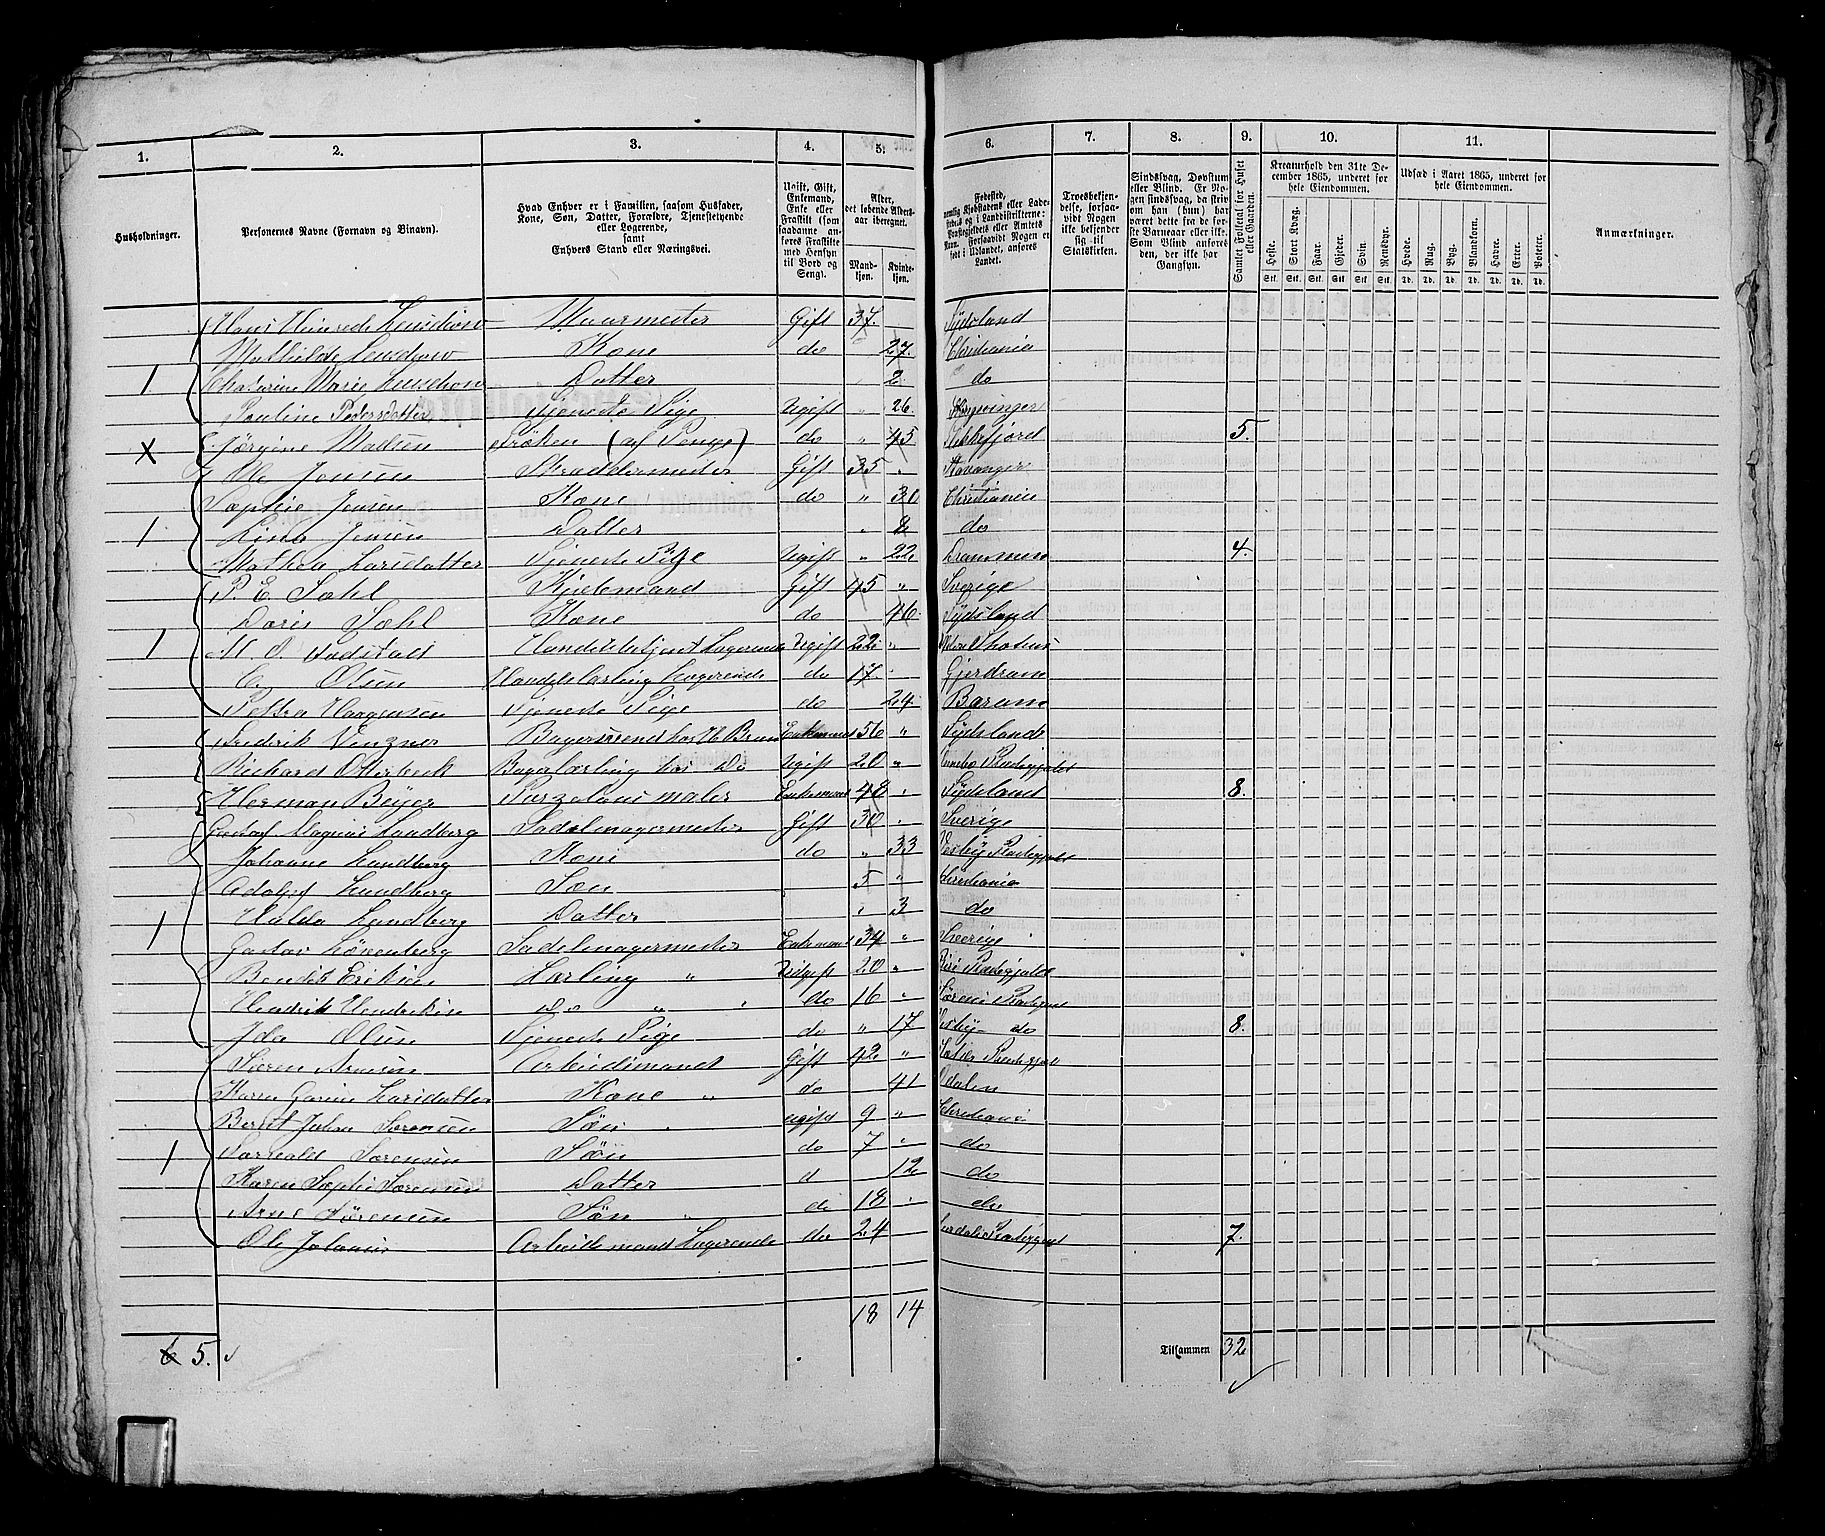 1. 2. 3. 4. 5. 6. 7. 8. 9. 10. 11.
Husholdninger.
Personernes Navne (Fornavn og Binavn).
Hvad Enhver er i Familien, saasom Husfader, Kone, Søn, Datter, Forældre, Tjenestetyende eller Logerende, samt Enhvers Stand eller Næringsvei.
Ugift, Gift, Enkemand, Enke eller Fraskilt (som saadanne anføres Fraskilte med Hensyn til Bord og Seng).
Alder, det løbende Aldersaar iberegnet.
Mandkjøn. Kvindekjøn.
Fødested, nemlig Kjøbstadens eller Ladestedets og i Landdistrikterne: Præstegjeldets eller Amtets Navn. Forsaavidt Nogen er født i Udlandet, anføres Landet.
Troesbekjendelse, forsaavidt Nogen ikke bekjender sig til Statskirken.
Sindssvag, Døvstum eller Blind. Er Nogen sindssvag, da skriv om han (hun) har været dette fra de første Barneaar eller ikke. Som Blind anføres den, der ikke har Gangsyn.
Samlet Folketal for Huset eller Gaarden.
Kreaturhold den 31te December 1865, underet for hele Eiendommen.
Heste. Stort Kvæg. Faar. Gjeter. Svin. Rensdyr.
Stk. Stk. Stk. Stk. Stk. Stk.
Udsæd i Aaret 1865, underet for hele Eiendommen.
Hvede. Rug. Byg. Blandkorn. Havre. Erter. Poteter.
Td. Td. Td. Td. Td. Td. Td.
Anmærkninger.
Hans Gift 37. Tydsland
Mathilde Kone do 27. Christiania
1 Chatarine Marie Datter 2 do
Pauline Pedersdatter Tjeneste Pige Ugift " 26.
X Jørgine Madsen Frøken (af Penge) do " 45 5.
Ole Jensen Skræddermester Gift 35 Stavanger
Sophie Jensen Kone do " 30 Christiania
1 Lina Jensen Datter " 8 do
Mathea Larsdatter Tjeneste Pige Ugift " 22 Drammen 4.
P. E. Sæhl Gift 45 " Sverige
Doris Sæhl Kone do 46 Tydsland
1 M. O. Handelsbetjent Logerende Ugift 22 "
C. Olsen Handelslærling Logerende do 17.
Petra Haagensen Tjeneste Pige do 24 Bærum
Fredrik Bagersvend hos H Brun Enkemand 56 " Tydsland
Richard Otterbeck Bagerlærling hos Do Ugift 20 "
Herman Beyer Porzelains maler Enkemand 48 Tydsland 8.
Gustaf Magnus Lundberg Sadelmagermester Gift 30 Sverige
Johanne Lundberg Kone do " 33 Vestby Præstegjeld
Adolf Lundberg Søn 5 " Christiania
1 Halda Lundberg Datter 3 do
Gustav Lövenberg Sadelmagermester Enkemand 34 " Sverige
Bendik Eriksen Lærling " Ugift 20 " Præstegjeld
Hendrik Hendriksen do " " do 16
Ida Olsen Tjeneste Pige do " 17 Vestby do 8.
Søren Arnesen Arbeidsmand Gift 42 "
Karen Larsdatter Kone " do 41 Odalen
Bernt Johan Sørensen Søn ugift 9 " Christiania
1 Sørensen Søn do 7 do
Karen Sophie Sørensen Datter d 12 do
Arne Sørensen Søn " do 18 do
Ole Johannes Arbeidsmand Logerende do 24 7.
18 14
6 5. Tilsammen 32